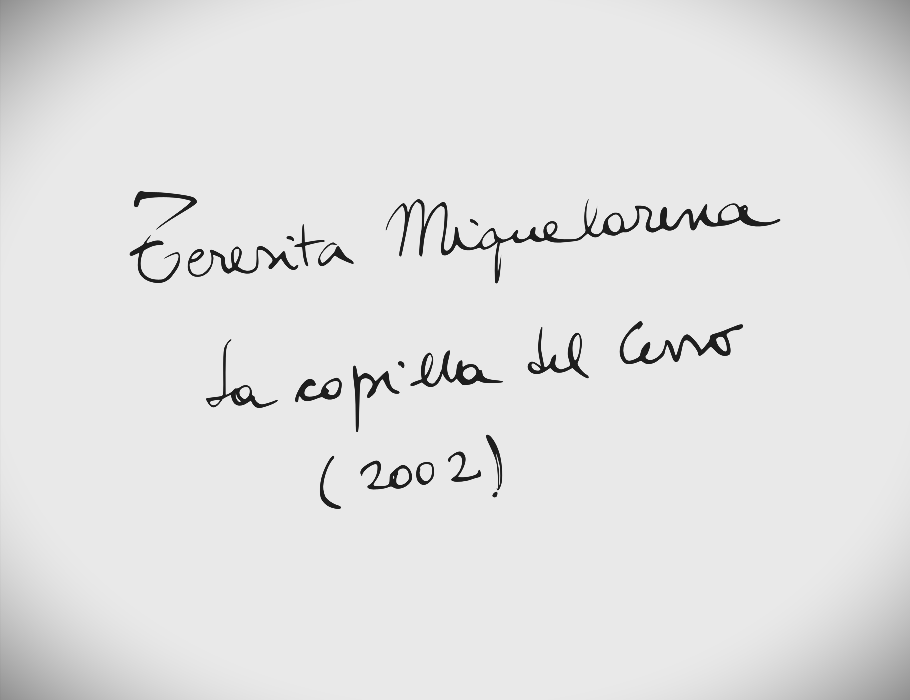 Teresita Miquelarena
La capilla del Cerro
(2002)